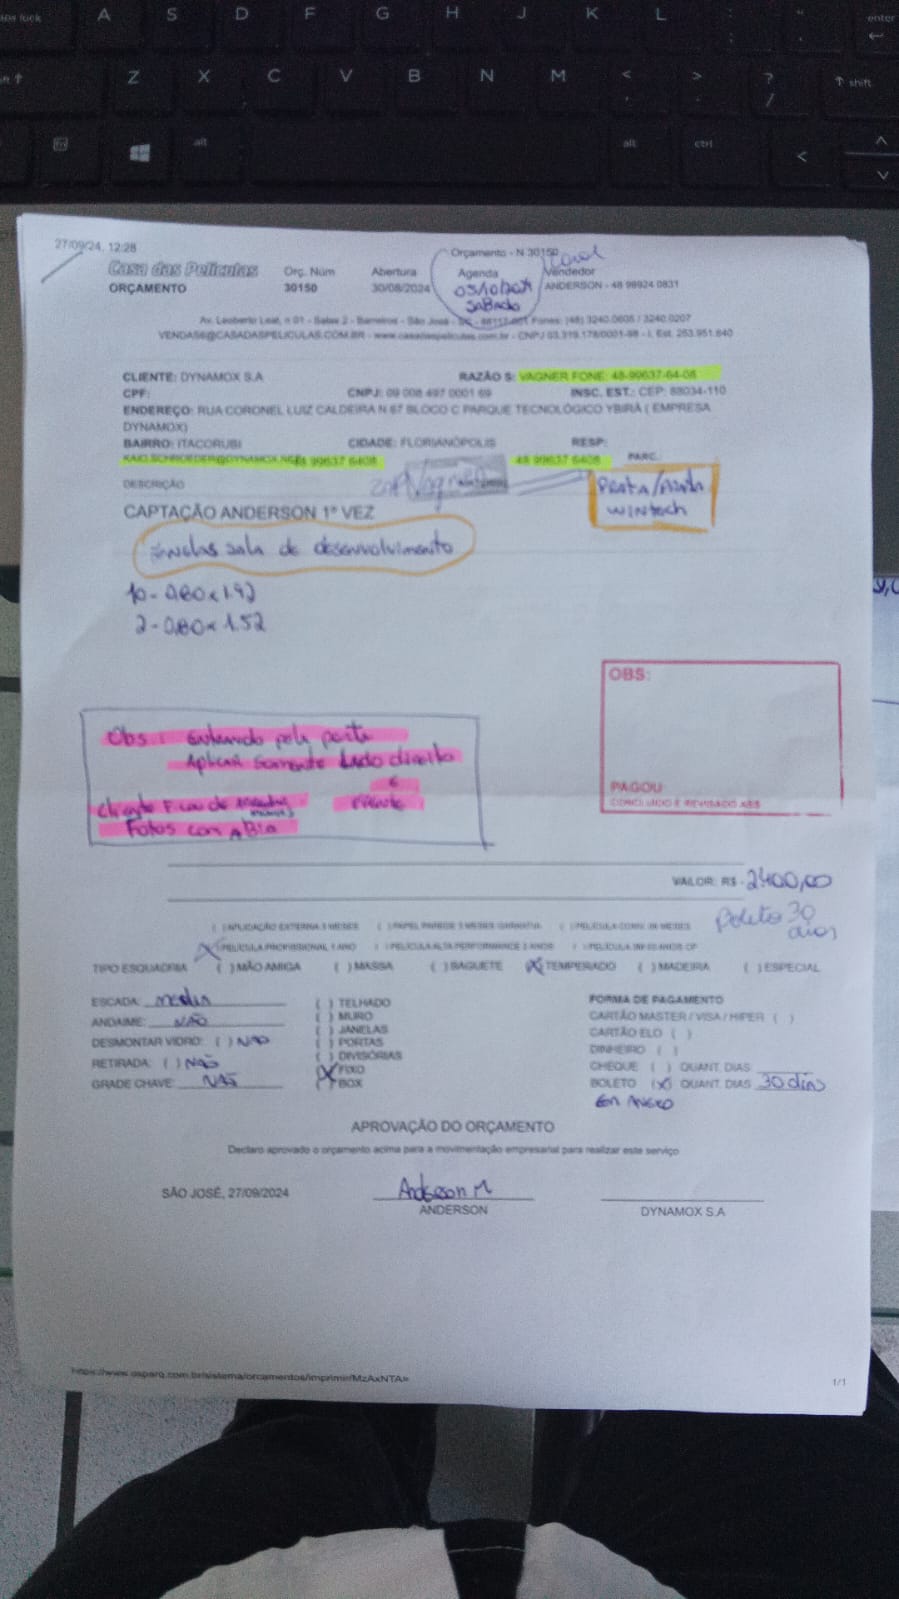 A S D F G H J K L enter
Z X C V B N M < > ? / shift
alt alt ctrl < ^
27/09/24, 12:28 Orçamento - N 30150
Casa das Películas Orç. Núm Abertura Agenda Vendedor
ORÇAMENTO 30150 30/08/2024 05/10/2024 ANDERSON - 48 98924 0831
SABADO
Av. Leoberto Leal, n 01 - Salas 2 - Barreiros - São José - SC - 88117-001 Fones: (48) 3240.0606 / 3240.0207
VENDAS6@CASADASPELICULAS.COM.BR - www.casadaspeliculas.com.br - CNPJ 03.319.178/0001-98 - I. Est. 253.951.640
CLIENTE: DYNAMOX S.A RAZÃO S: VAGNER FONE: 48-99637-64-08
CPF: CNPJ: 09 008 497 0001 69 INSC. EST.: CEP: 88034-110
ENDEREÇO: RUA CORONEL LUIZ CALDEIRA N 67 BLOCO C PARQUE TECNOLÓGICO YBIRÁ ( EMPRESA
DYNAMOX)
BAIRRO: ITACORUBI CIDADE: FLORIANÓPOLIS RESP:
KAIO.SCHROEDER@DYNAMOX.NET 99637 6408 48 99637 6408 PARC.:
DESCRIÇÃO Vagner PRATA/PRATA
WINTECH
CAPTAÇÃO ANDERSON 1ª VEZ
Janelas sala de desenvolvimento
10 - 0.80 x 1.92
2 - 0.80 x 1.52
OBS:
Obs: Entrando pela porta
Aplicar somente lado direito
e
cliente Ficou de
Fotos com a Bia
PAGOU
CONCLUÍDO E REVISADO ASS
VALOR: R$ - 2400,00
Boleto 30
dias
( ) APLICAÇÃO EXTERNA 3 MESES ( ) PAPEL PAREDE 3 MESES GARANTIA ( ) PELÍCULA COMU. 06 MESES
X PELÍCULA PROFISSIONAL 1 ANO ( ) PELÍCULA ALTA PERFORMANCE 2 ANOS ( ) PELÍCULA INP 03 ANOS CP
TIPO ESQUADRIA ( ) MÃO AMIGA ( ) MASSA ( ) BAGUETE (X) TEMPERADO ( ) MADEIRA ( ) ESPECIAL
ESCADA: media ( ) TELHADO FORMA DE PAGAMENTO
ANDAIME: NÃO ( ) MURO CARTÃO MASTER / VISA / HIPER ( )
DESMONTAR VIDRO: ( ) NÃO ( ) JANELAS CARTÃO ELO ( )
RETIRADA: ( ) NÃO ( ) PORTAS DINHEIRO ( )
GRADE CHAVE: NÃO ( ) DIVISÓRIAS CHEQUE ( ) QUANT. DIAS:
(X) FIXO BOLETO (X) QUANT. DIAS 30 dias
( ) BOX Em ANEXO
APROVAÇÃO DO ORÇAMENTO
Declaro aprovado o orçamento acima para a movimentação empresarial para realizar este serviço
SÃO JOSÉ, 27/09/2024 Anderson M
ANDERSON DYNAMOX S.A
https://www.osparq.com.br/sistema/orcamentos/imprimir/MzAxNTA= 1/1